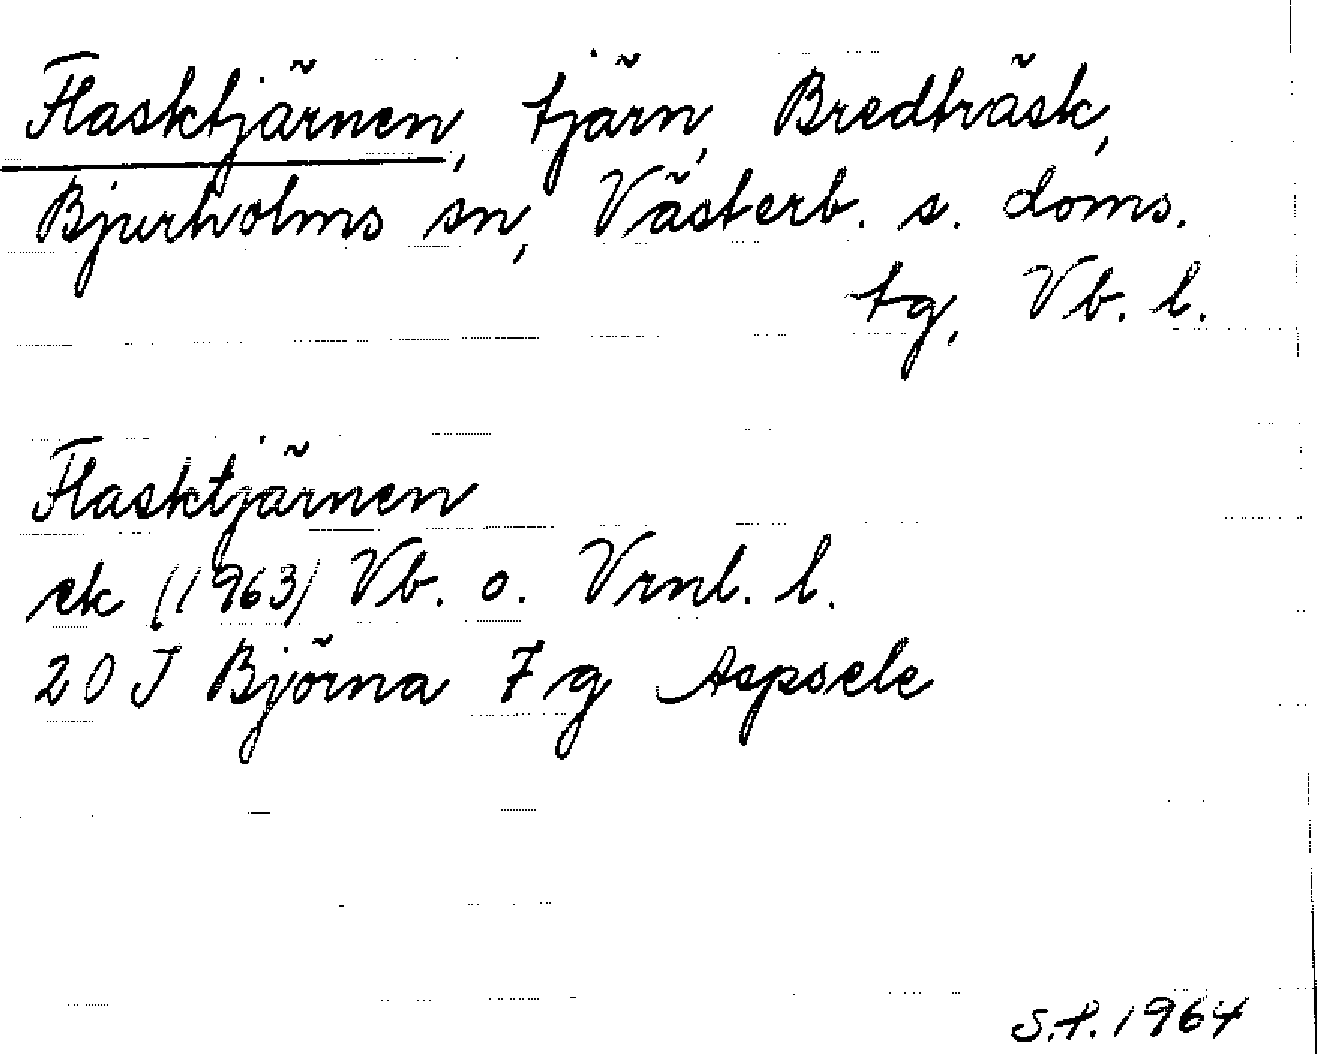 Flasktjärnen, tjärn, Bredträsk,
Bjurholms sn, Västerb. s. doms.
tg, Vb. l.
Flasktjärnen
ek (1963) Vb. o. Vrnl. l.
20 J Björna 7 g Aspsele
S.P. 1964